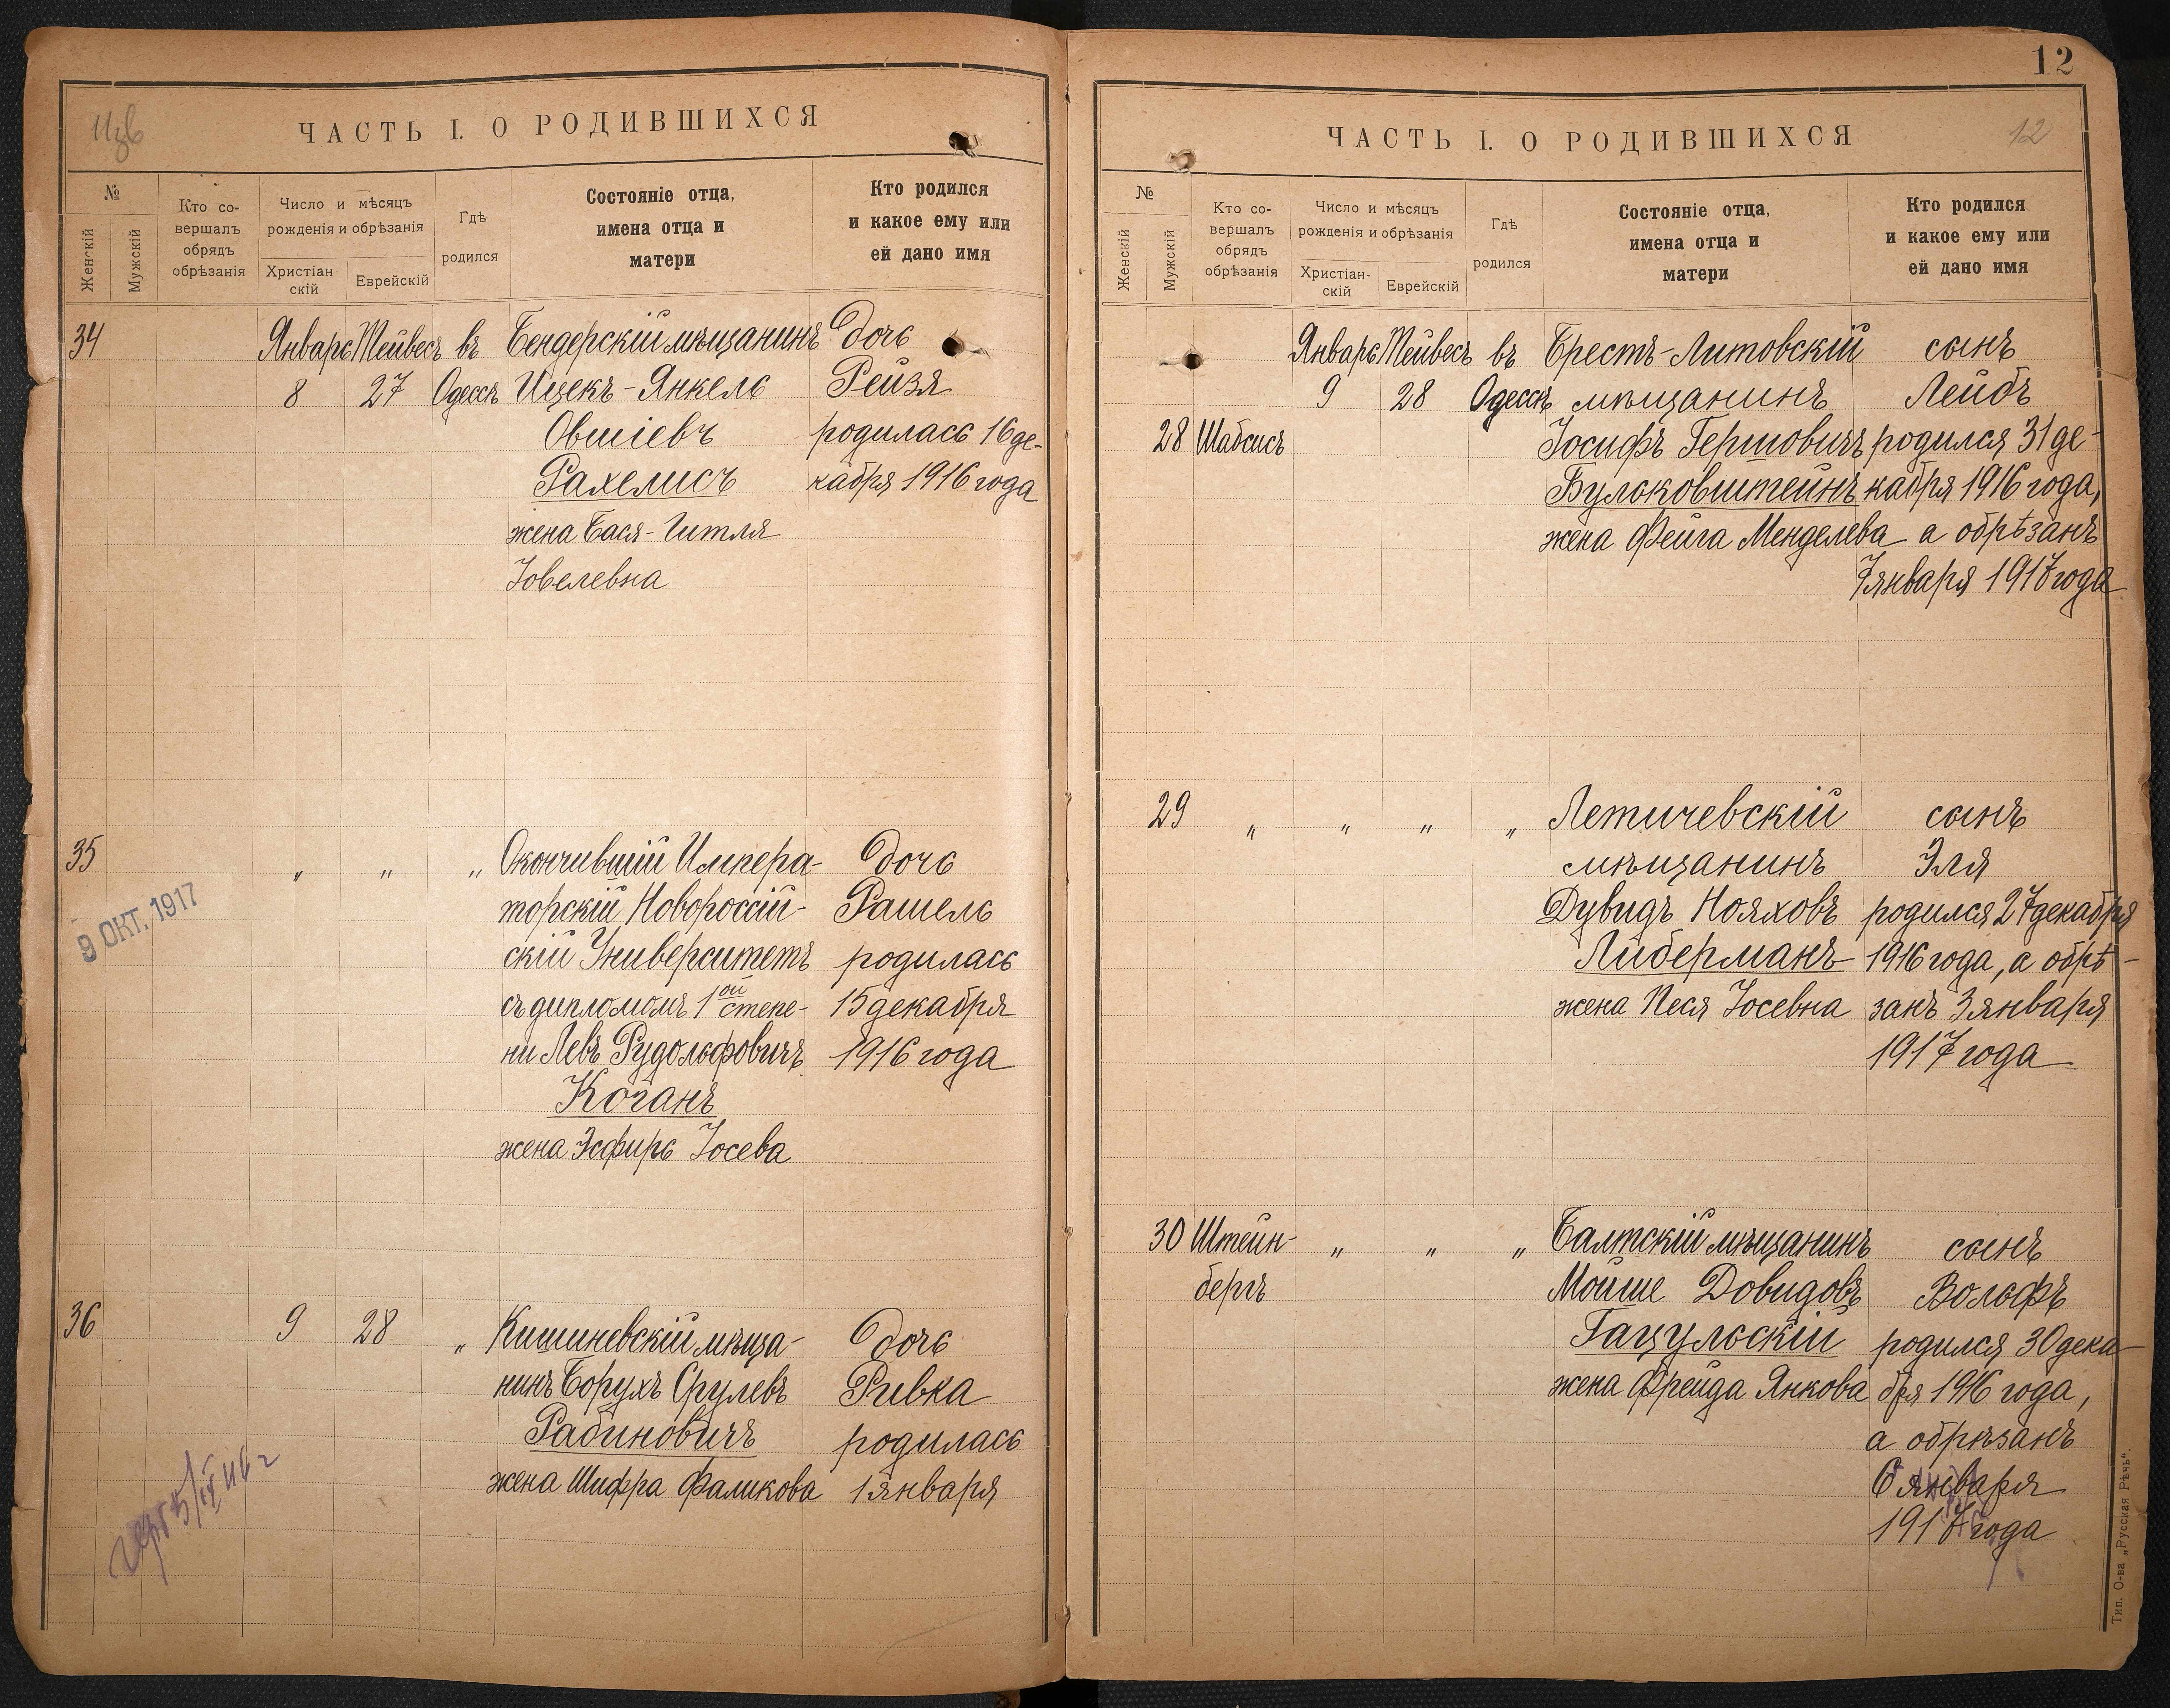 Изв
ЧАСТЬ I. О РОДИВШИХСЯ
№
Женскій
Мужскій
Кто со-
вершалъ
обрядъ
обрѣзанія
Число и мѣсяцъ
рожденія и обрѣзанія
Христіан
скій
Еврейскій
Гдѣ
родился
Состояніе отца,
имена отца и
матери
Кто родился
и какое ему или
ей дано имя
34 Январь Тейвесъ въ Бендерскій мѣщанинъ дочь
8 27 Одессѣ Ицекъ-Янкель Рейзя
Овшіевъ родилась 16 де-
Рахелисъ кабря 1916 года
жена Бася-Гитля
Іовелевна
35 " " " Окончившій Импера- дочь
торскій Новороссій- Рашель
9 ОКТ. 1917
скій Университетъ родилась
съ дипломомъ 1ой степе- 15 декабря
ни Левъ Рудольфовичъ 1916 года
Коганъ
жена Эсфирь Іосева
36 9 28 " Кишиневскій мѣща- дочь
нинъ Борухъ Срулевъ Ривка
Рабиновичъ родилась
жена Шифра Фаликова 1 января
12
ЧАСТЬ I. О РОДИВШИХСЯ
12
№
Женскій
Мужскій
Кто со-
вершалъ
обрядъ
обрѣзанія
Число и мѣсяцъ
рожденія и обрѣзанія
Христіан-
скій
Еврейскій
Гдѣ
родился
Состояніе отца,
имена отца и
матери
Кто родился
и какое ему или
ей дано имя
Январь Тейвесъ въ Брестъ-Литовскій сынъ
9 28 Одессѣ мѣщанинъ Лейбъ
28 Шабсисъ Іосифъ Гершовичъ родился 31 де-
Бульковштейнъ кабря 1916 года,
жена Фейга Менделева а обрѣзанъ
7 января 1917 года
29 " " " " Летичевскій сынъ
мѣщанинъ Эля
Дувидъ Нояховъ родился 27 декабря
Либерманъ 1916 года, а обрѣ-
жена Песя Іосевна занъ 3 января
1917 года
30 Штейн- " " " Балтскій мѣщанинъ сынъ
бергъ Мойше Довидовъ Вольфъ
Гацульскій родился 30 дека-
жена Фрейда Янкова бря 1916 года,
а обрѣзанъ
6 января
1917 года
Тип. О-ва „Русская Рѣчь".